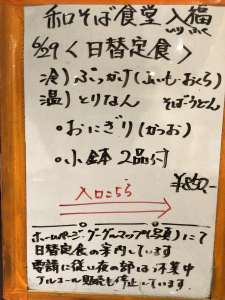 和そば食堂 入福
いり ふく
6/29 〈日替定食〉
冷) ぶっかけ(めいも・おくら)
温) とりなん そば・うどん
・おにぎり(かつお)
・小鉢 2品付
¥850-
入口こちら
ホームページ・グーグルマップ(写真)にて
日替定食の案内しています
要請に従い夜の部は休業中
アルコール販売も停止しています